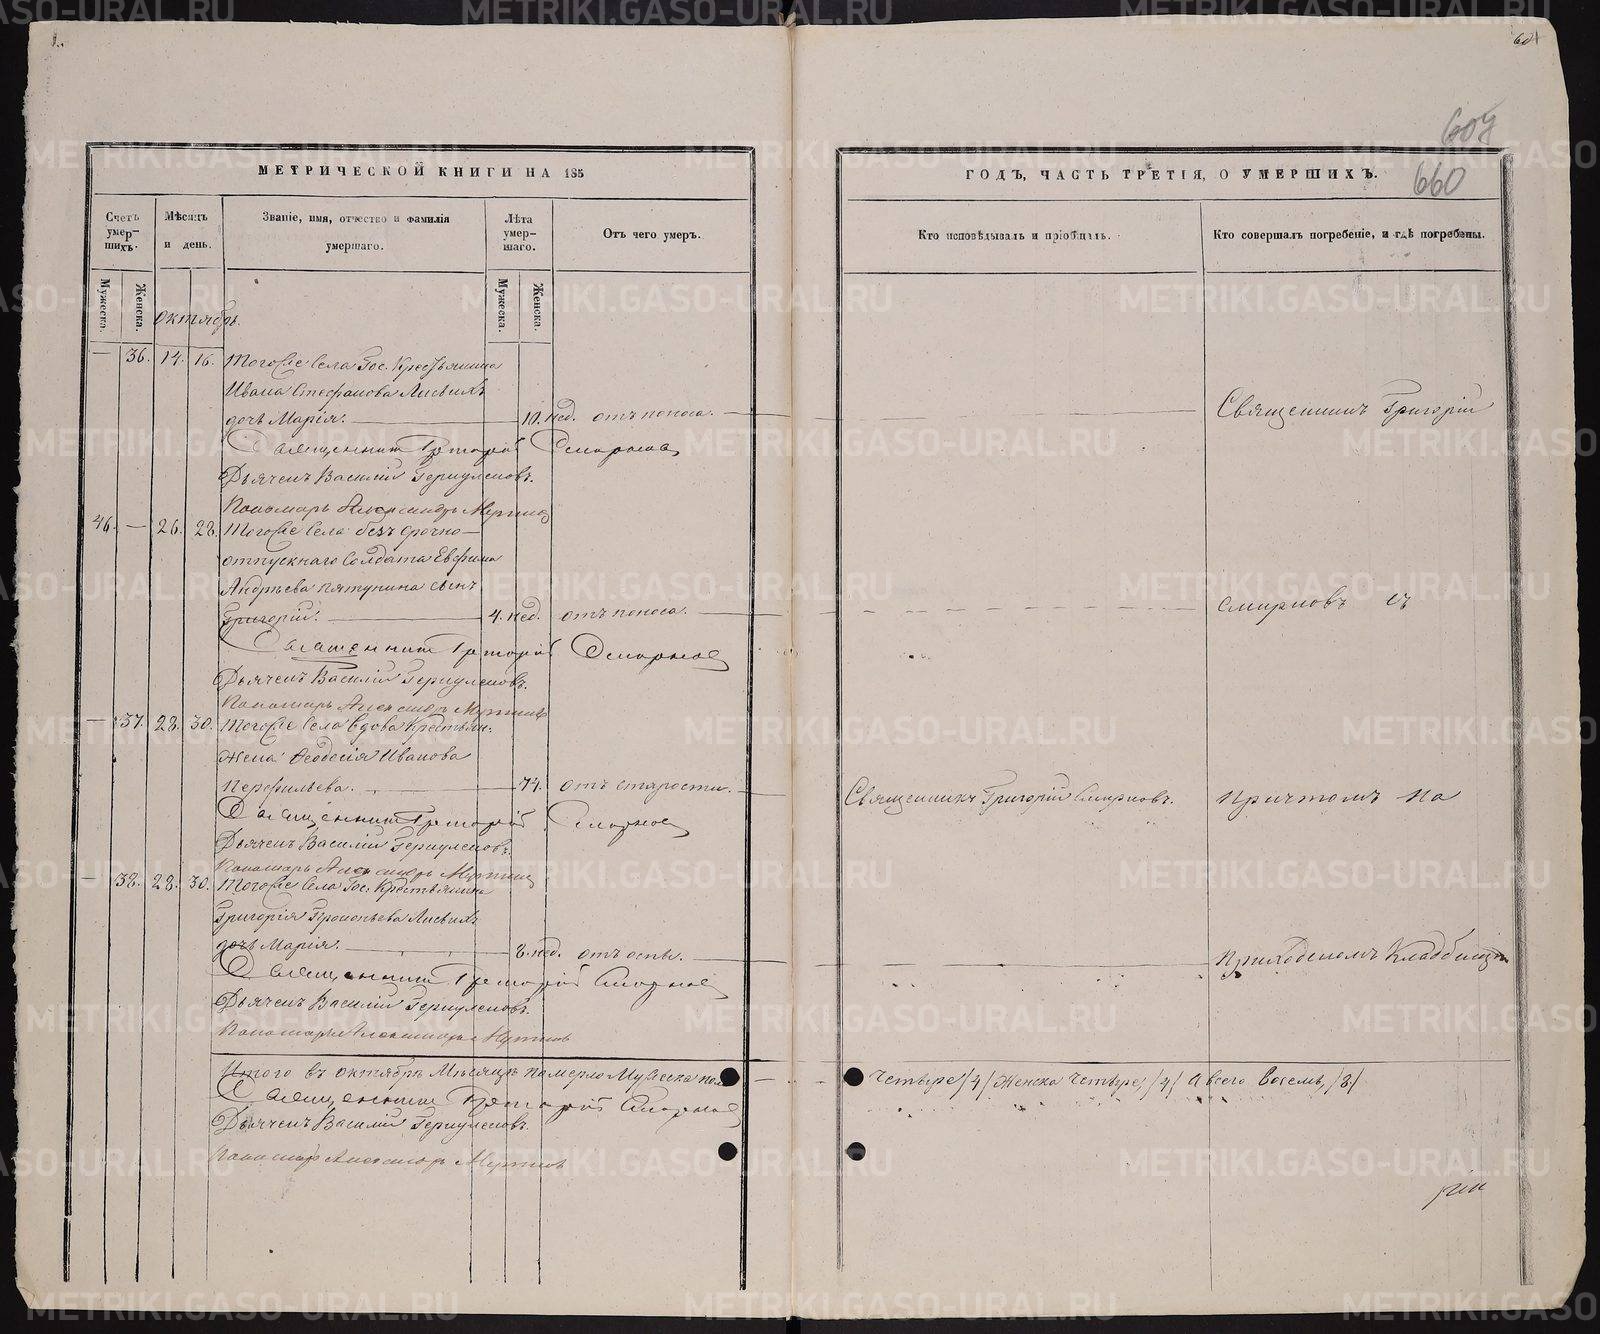 604
607
660
МЕТРИЧЕСКОЙ КНИГИ НА 185
ГОДЪ, ЧАСТЬ ТРЕТІЯ, О УМЕРШИХЪ.
Счетъ умер-шихъ.
Мѣсяцъ и день.
Званіе, имя, отчество и фамилія умершаго.
Лѣта умер-шаго.
Отъ чего умеръ.
Кто исповѣдывалъ и пріобщалъ.
Кто совершалъ погребеніе, и гдѣ погребены.
Мужеска.
Женска.
Мужеска.
Женска.
Октябрь.
— 36. 14. 16. Тогоже села Гос. Крестьянина
Ивана Стефанова Лисьихъ
дочь Марія. 10. нед. отъ поноса. Священникъ Григорій
Священникъ Григорій Смирновъ
Дьячекъ Василій Геркулесовъ.
Пономарь Александръ
46. — 26. 28. Тогоже села безъ срочно—
отпускнаго солдата Евфима
Андреева Пятунина сынъ
Григорій. 4. нед. отъ поноса. Смирновъ съ
Священникъ Григорій Смирновъ
Дьячекъ Василій Геркулесовъ.
Пономарь Александръ
— 37. 28. 30. Тогоже села вдова Крестьян:
жена Феодосія Иванова
Перфильева. 74. отъ старости. Священникъ Григорій Смирновъ. Причтомъ на
Священникъ Григорій Смирновъ
Дьячекъ Василій Геркулесовъ.
Пономарь Александръ
— 38. 28. 30. Тогоже села Гос. Крестьянина
Григорія Прокопьева Лисьихъ
дочь Марія. 8. нед. отъ оспы. Приходскомъ Кладбищѣ
Священникъ Григорій Смирновъ
Дьячекъ Василій Геркулесовъ.
Пономарь Александръ
Итого въ октябрѣ мѣсяцѣ померло мужеска пола четыре /4/ женска четыре /4/ а всего восемь /8/
Священникъ Григорій Смирновъ
Дьячекъ Василій Геркулесовъ.
Пономарь Александръ
METRIKI.GASO-URAL.RU